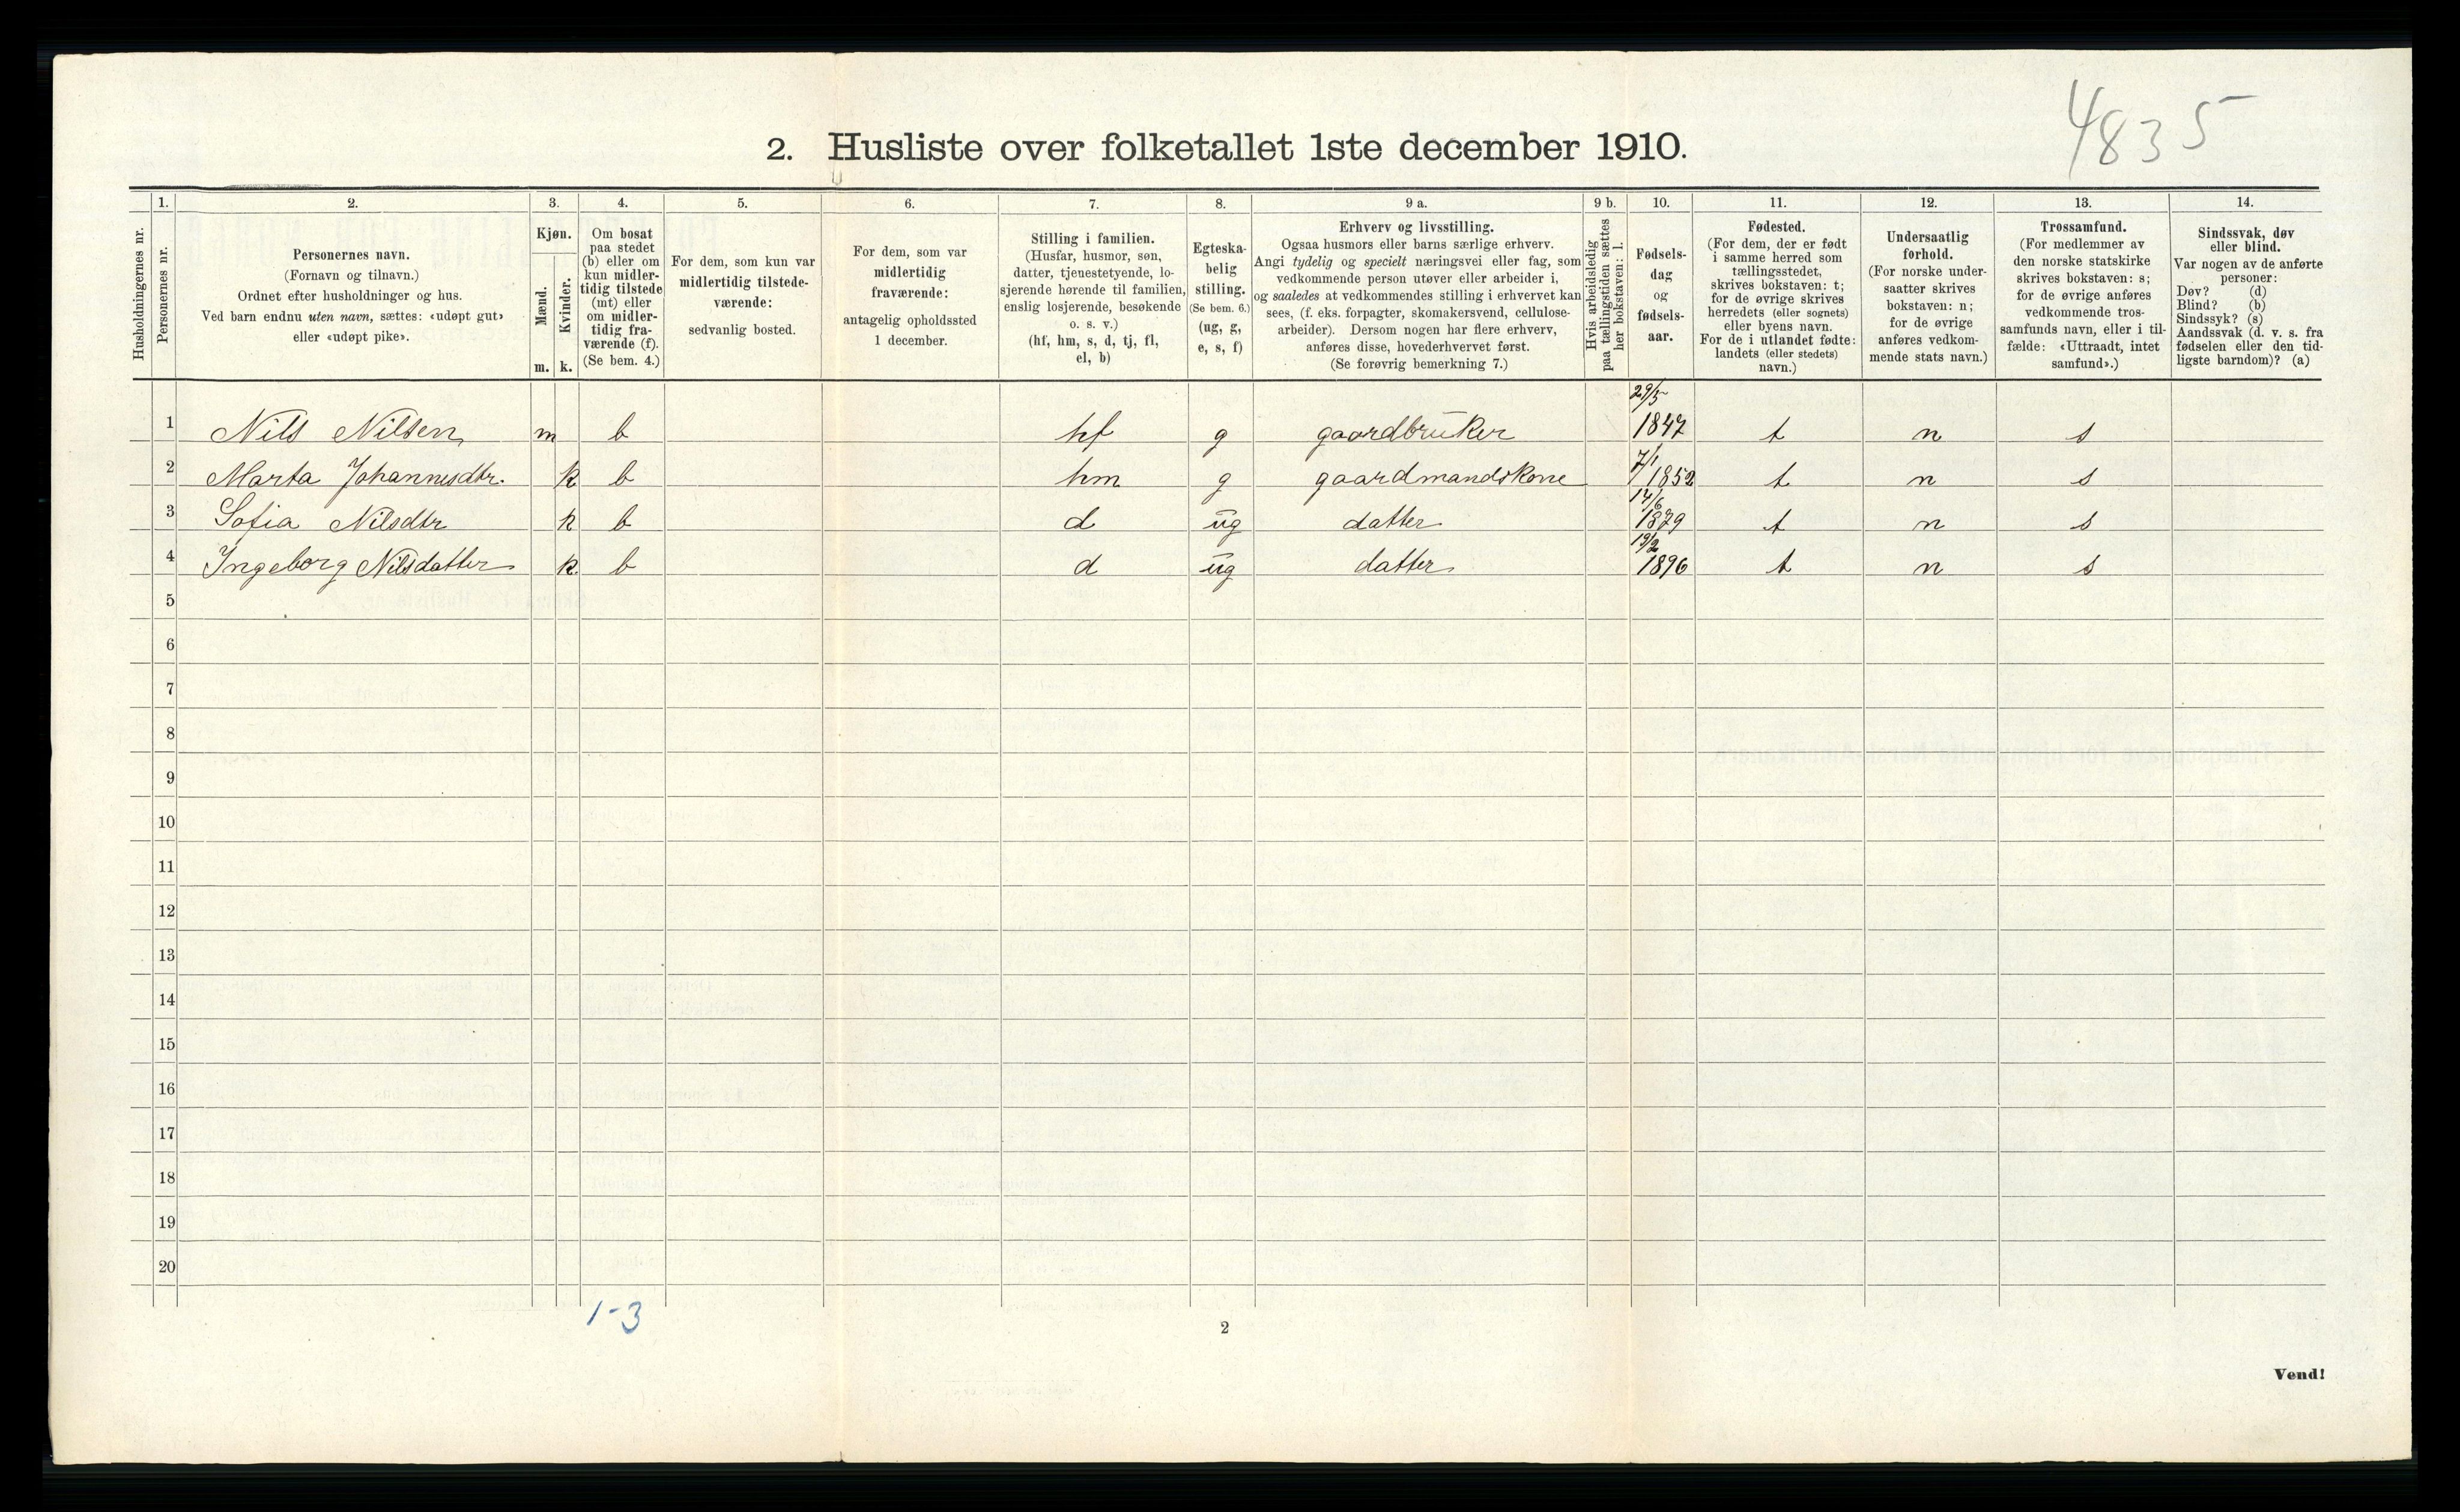 4835
2. Husliste over folketallet 1ste december 1910.
Husholdningernes nr.
1.
Personernes nr.
2.
Personernes navn.
(Fornavn og tilnavn.)
Ordnet efter husholdninger og hus.
Ved barn endnu uten navn, sættes: «udøpt gut»
eller «udøpt pike».
3.
Kjøn.
Mænd.
m.
Kvinder.
k.
4.
Om bosat
paa stedet
(b) eller om
kun midler-
tidig tilstede
(mt) eller
om midler-
tidig fra-
værende (f).
(Se bem. 4.)
5.
For dem, som kun var
midlertidig tilstede-
værende:
sedvanlig bosted.
6.
For dem, som var
midlertidig
fraværende:
antagelig opholdssted
1 december.
7.
Stilling i familien.
(Husfar, husmor, søn,
datter, tjenestetyende, lo-
sjerende hørende til familien,
enslig losjerende, besøkende
o. s. v.)
(hf, hm, s, d, tj, fl,
el, b)
8.
Egteska-
belig
stilling.
(Se bem. 6.)
(ug, g,
e, s, f)
9 a.
Erhverv og livsstilling.
Ogsaa husmors eller barns særlige erhverv.
Angi tydelig og specielt næringsvei eller fag, som
vedkommende person utøver eller arbeider i,
og saaledes at vedkommendes stilling i erhvervet kan
sees, (f. eks. forpagter, skomakersvend, cellulose-
arbeider). Dersom nogen har flere erhverv,
anføres disse, hovederhvervet først.
(Se forøvrig bemerkning 7.)
9 b.
Hvis arbeidsledig
paa tællingstiden sættes
her bokstaven: l.
10.
Fødsels-
dag
og
fødsels-
aar.
11.
Fødested.
(For dem, der er født
i samme herred som
tællingsstedet,
skrives bokstaven: t;
for de øvrige skrives
herredets (eller sognets)
eller byens navn.
For de i utlandet fødte:
landets (eller stedets)
navn.)
12.
Undersaatlig
forhold.
(For norske under-
saatter skrives
bokstaven: n;
for de øvrige
anføres vedkom-
mende stats navn.)
13.
Trossamfund.
(For medlemmer av
den norske statskirke
skrives bokstaven: s;
for de øvrige anføres
vedkommende tros-
samfunds navn, eller i til-
fælde: «Uttraadt, intet
samfund».)
14.
Sindssvak, døv
eller blind.
Var nogen av de anførte
personer:
Døv? (d)
Blind? (b)
Sindssyk? (s)
Aandssvak (d. v. s. fra
fødselen eller den tid-
ligste barndom)? (a)
1 Nils Nilsen m b hf g gaardbruker 29/5 1847 t n s
2 Marta Johannesdtr. k b hm g gaardmandskone 7/1 1852 t n s
3 Sofia Nilsdtr k b d ug datter 14/6 1879 t n s
4 Ingeborg Nilsdatter k b d ug datter 19/2 1896 t n s
5
6
7
8
9
10
11
12
13
14
15
16
17
18
19
20
1-3
2
Vend!